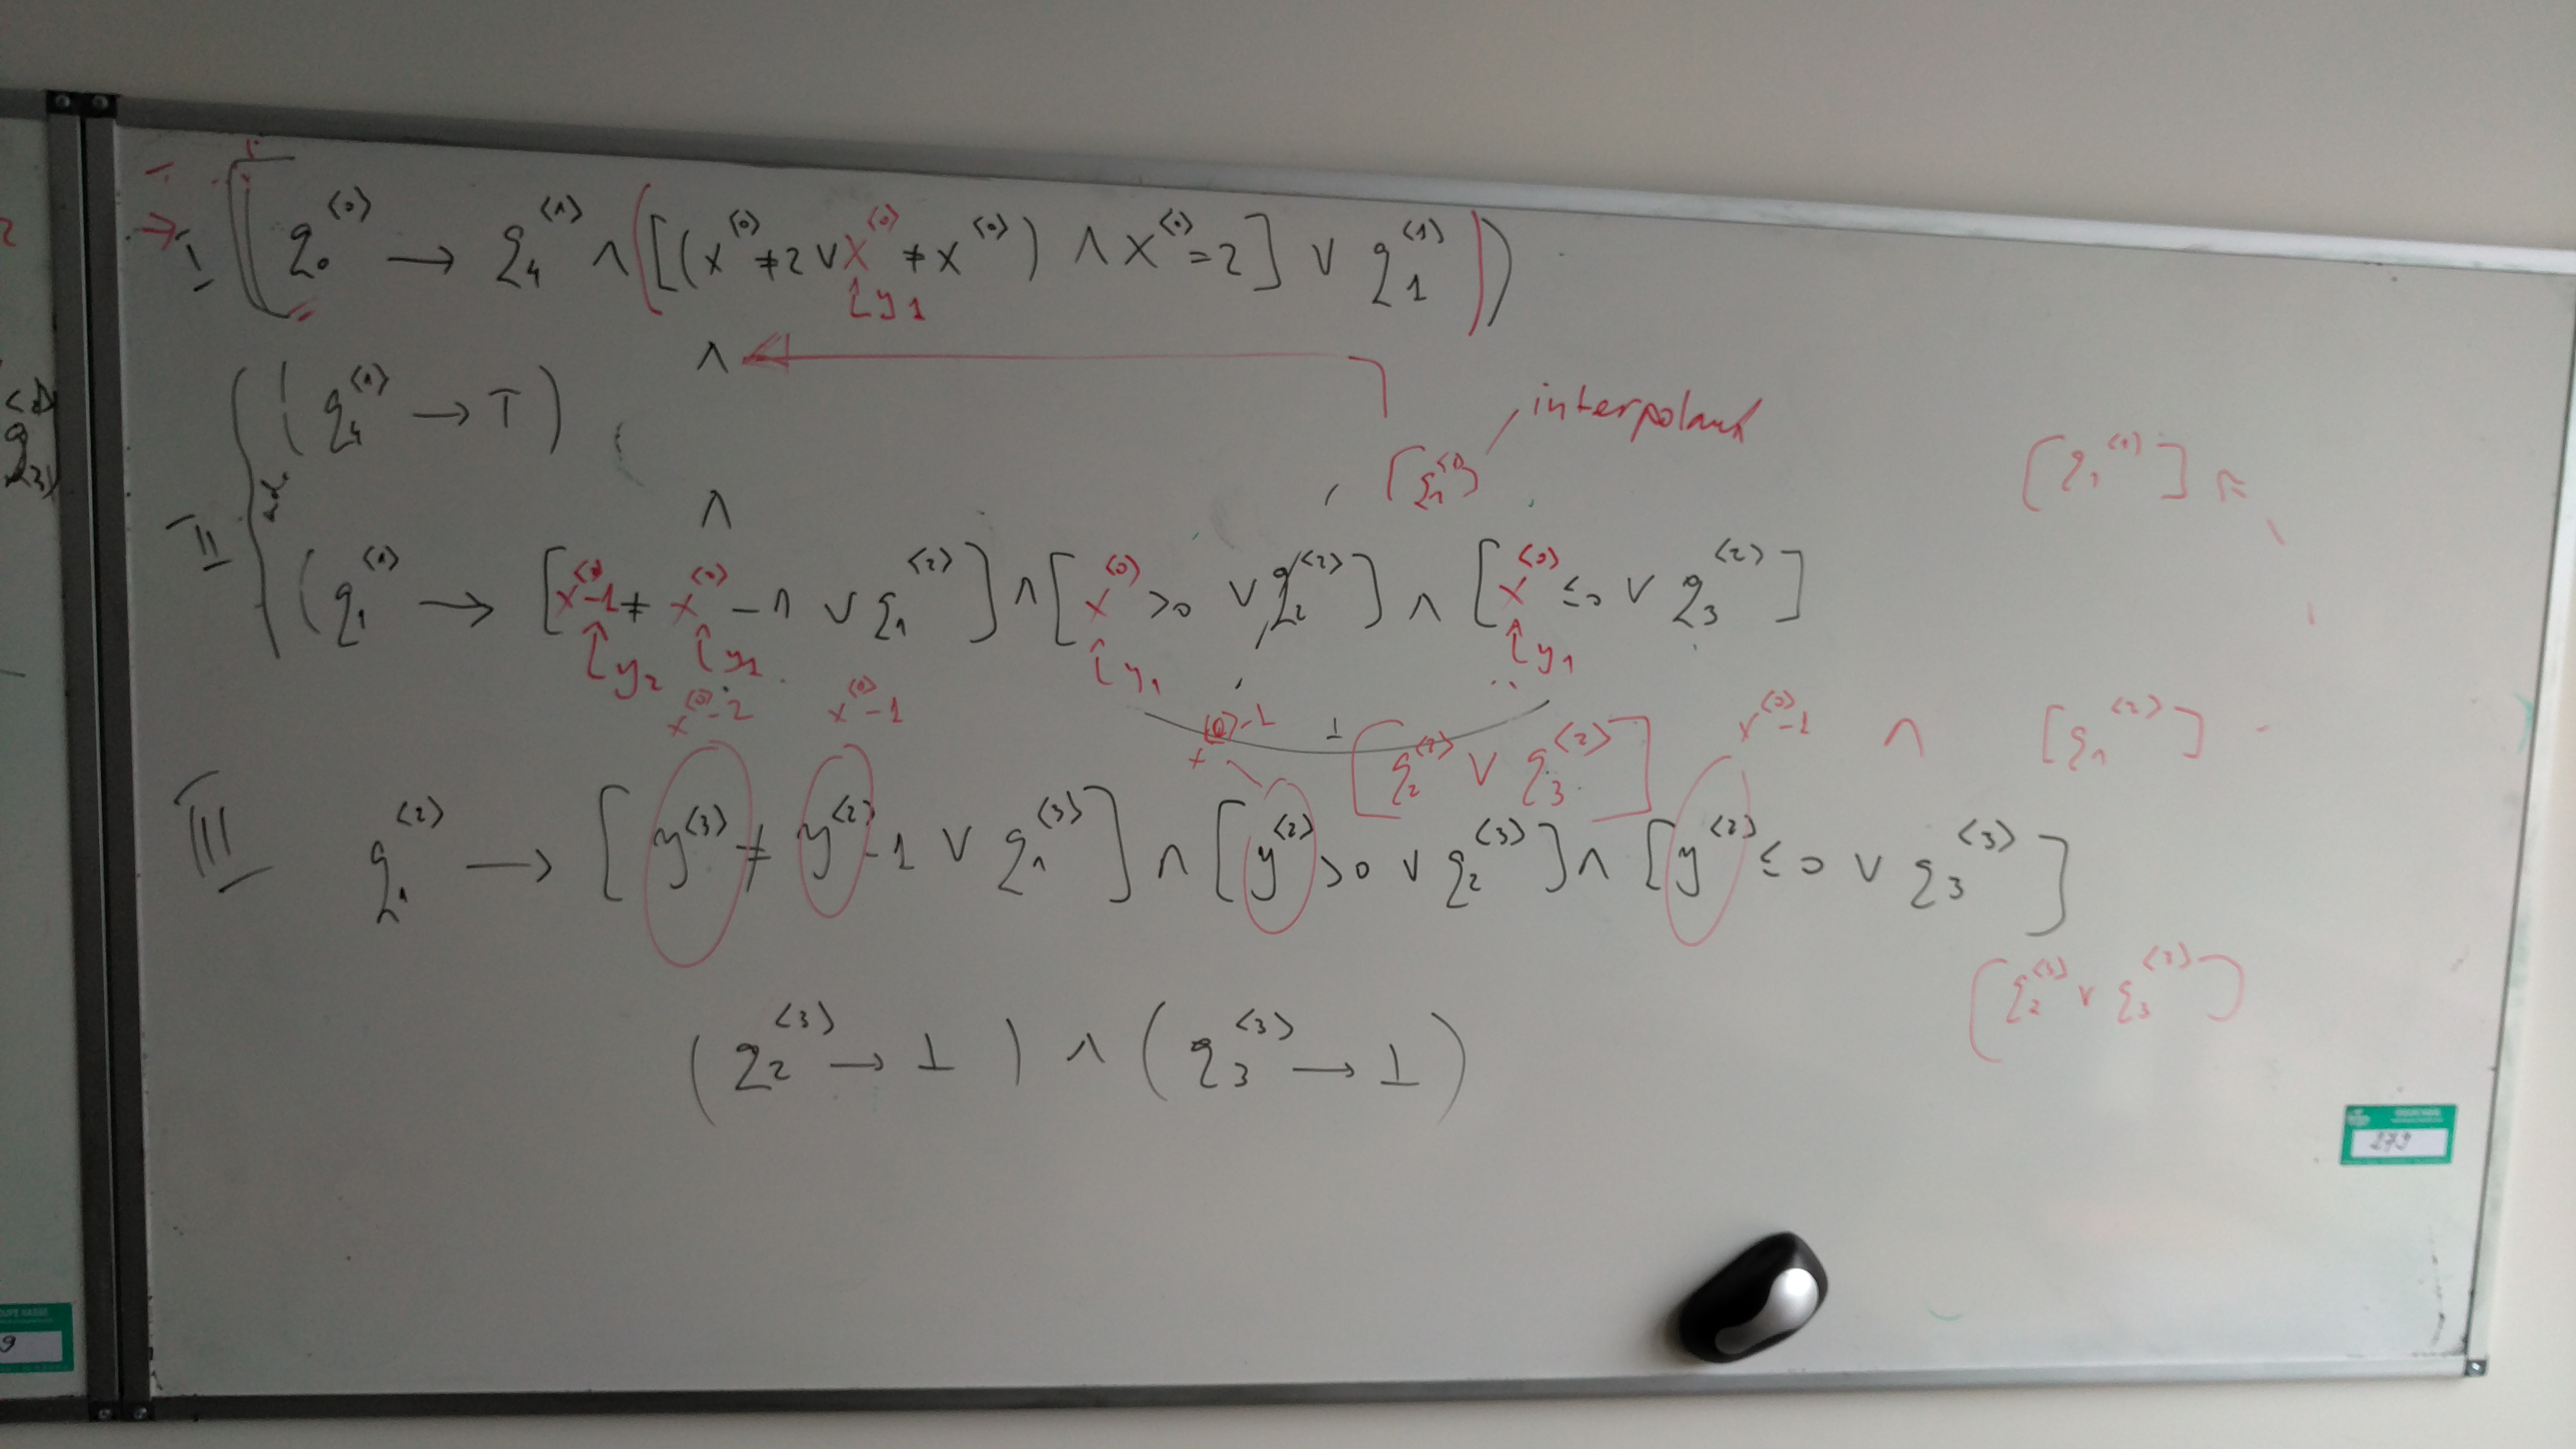 I ( q₀^⟨0⟩ → q₄^⟨1⟩ ∧ ( [ (x^⟨0⟩ ≠ 2 ∨ x^⟨0⟩ ≠ x^⟨0⟩) ∧ x^⟨0⟩ = 2 ] ∨ q₁^⟨1⟩ ) )
↑y₁
∧
( q₄^⟨1⟩ → ⊤ )
interpolant
[q₁^⟨1⟩]
[q₁^⟨1⟩] ∧
∧
II ( q₁^⟨1⟩ → [ x^⟨0⟩-1 ≠ x^⟨0⟩ - 1 ∨ q₁^⟨2⟩ ] ∧ [ x^⟨0⟩ > 0 ∨ q₂^⟨2⟩ ] ∧ [ x^⟨0⟩ ≤ 0 ∨ q₃^⟨2⟩ ]
↑y₂ ↑y₁ ↑y₁ ↑y₁
x^⟨0⟩-2 x^⟨0⟩-1 x^⟨0⟩-1 ⊥ [ q₂^⟨2⟩ ∨ q₃^⟨2⟩ ] x^⟨0⟩-1 ∧ [q₁^⟨2⟩]
III q₁^⟨2⟩ → [ y^⟨3⟩ ≠ y^⟨2⟩ - 1 ∨ q₁^⟨3⟩ ] ∧ [ y^⟨2⟩ > 0 ∨ q₂^⟨3⟩ ] ∧ [ y^⟨2⟩ ≤ 0 ∨ q₃^⟨3⟩ ]
[ q₂^⟨3⟩ ∨ q₃^⟨3⟩ ]
( q₂^⟨3⟩ → ⊥ ) ∧ ( q₃^⟨3⟩ → ⊥ )
279